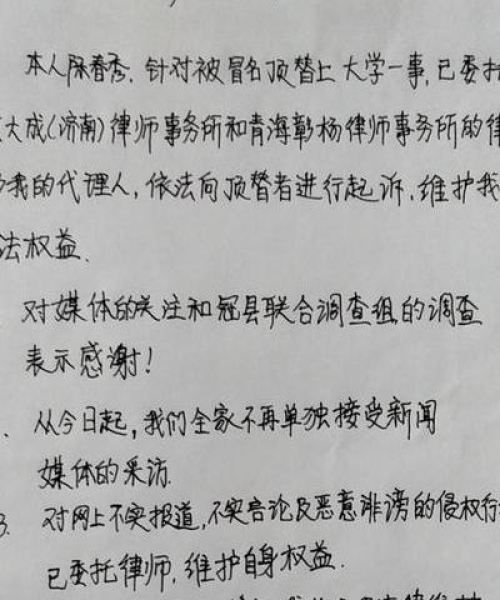 本人陈春秀,针对被冒名顶替上大学一事,已委托
大成(济南)律师事务所和青海彰杨律师事务所的律
我的代理人,依法向顶替者进行起诉,维护我
法权益.
对媒体的关注和冠县联合调查组的调查
表示感谢!
从今日起,我们全家不再单独接受新闻
媒体的采访.
3. 对网上不实报道,不实言论及恶意诽谤的侵权行
已委托律师,维护自身权益.